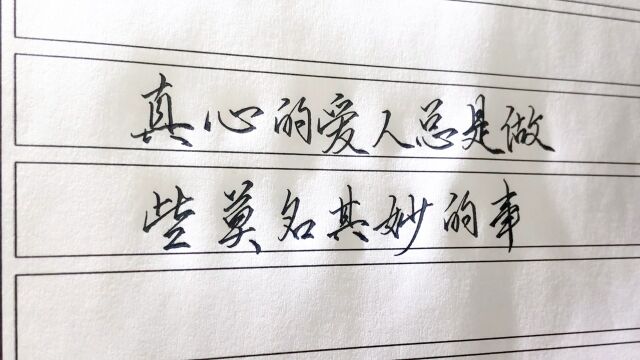 真心的爱人总是做
些莫名其妙的事